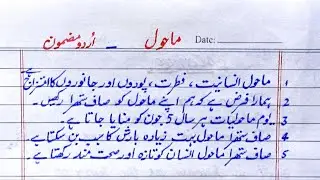 ماحول - اُردو مضمون Date:
1 ماحول انسانیت، فطرت، پودوں اور جانوروں کا امتزاج ہے۔
2 ہمارا فرض ہے کہ ہم اپنے ماحول کو صاف ستھرا رکھیں۔
3 یوم ماحولیات ہر سال 5 جون کو منایا جاتا ہے۔
4 صاف ستھرا ماحول بہت زیادہ بارش کا سبب بن سکتا ہے۔
5 صاف ستھرا ماحول انسان کو تازہ اور صحت مند رکھتا ہے۔